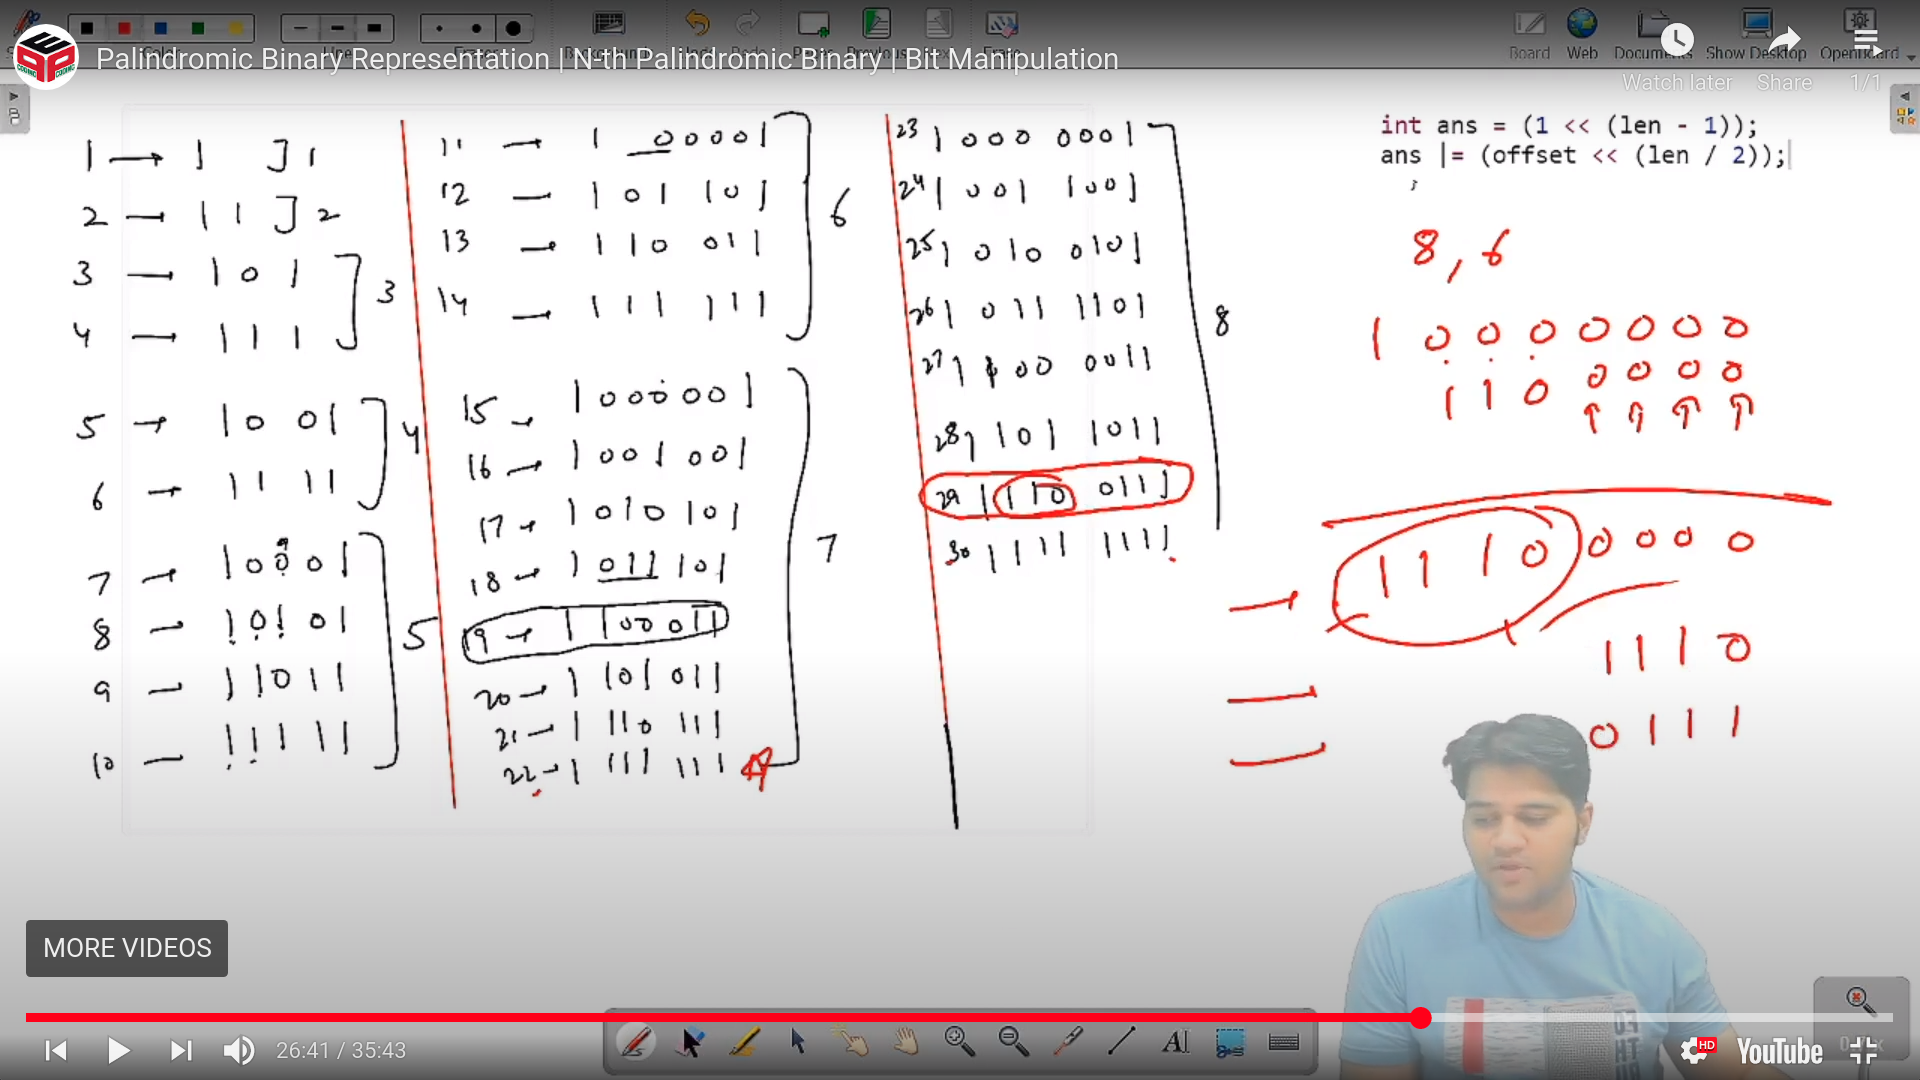 Palindromic Binary Representation | N-th Palindromic Binary | Bit Manipulation
Board Web Documents Show Desktop OpenBoard
Watch later Share 1/1
1 → 1 ] 1
2 → 1 1 ] 2
3 → 1 0 1
4 → 1 1 1
3
5 → 1 0 0 1
6 → 1 1 1 1
4
7 → 1 0 0 0 1
8 → 1 0 1 0 1
9 → 1 1 0 1 1
10 → 1 1 1 1 1
5
11 → 1 0 0 0 0 1
12 → 1 0 1 1 0 1
13 → 1 1 0 0 1 1
14 → 1 1 1 1 1 1
6
15 → 1 0 0 0 0 0 1
16 → 1 0 0 1 0 0 1
17 → 1 0 1 0 1 0 1
18 → 1 0 1 1 1 0 1
19 → 1 1 0 0 0 1 1
20 → 1 1 0 1 0 1 1
21 → 1 1 1 0 1 1 1
22 → 1 1 1 1 1 1 1
7
23 1 0 0 0 0 0 0 1
24 1 0 0 1 1 0 0 1
25 1 0 1 0 0 1 0 1
26 1 0 1 1 1 1 0 1
27 1 1 0 0 0 0 1 1
28 1 1 0 1 1 0 1 1
29 1 1 1 0 0 1 1 1
30 1 1 1 1 1 1 1 1
8
int ans = (1 << (len - 1));
ans |= (offset << (len / 2));
8, 6
1 0 0 0 0 0 0 0
1 1 0 0 0 0 0
1 1 1 0 0 0 0 0
1 1 1 0
0 1 1 1
MORE VIDEOS
26:41 / 35:43
HD
YouTube